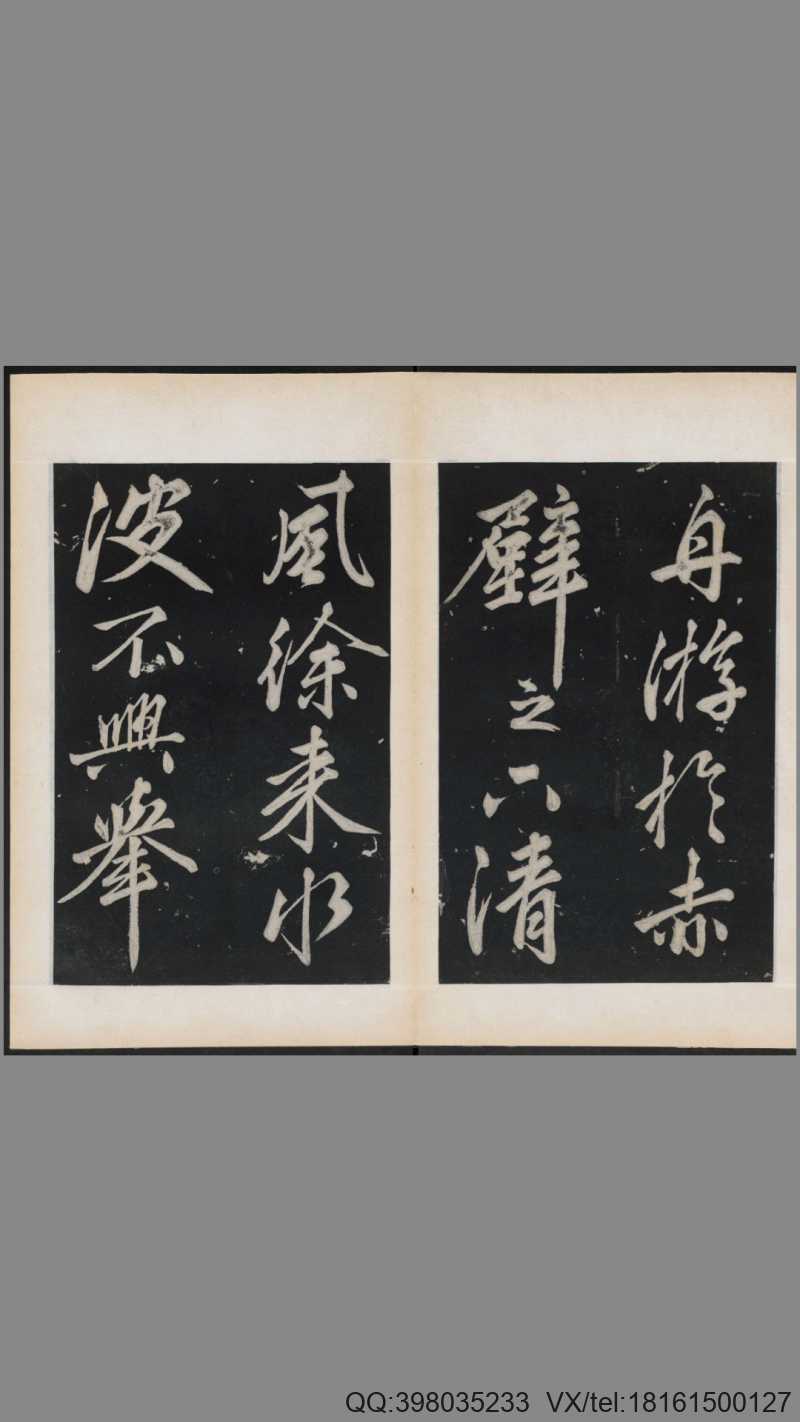 舟游於赤
壁之下清
風徐来水
波不興舉
QQ:398035233 VX/tel:18161500127